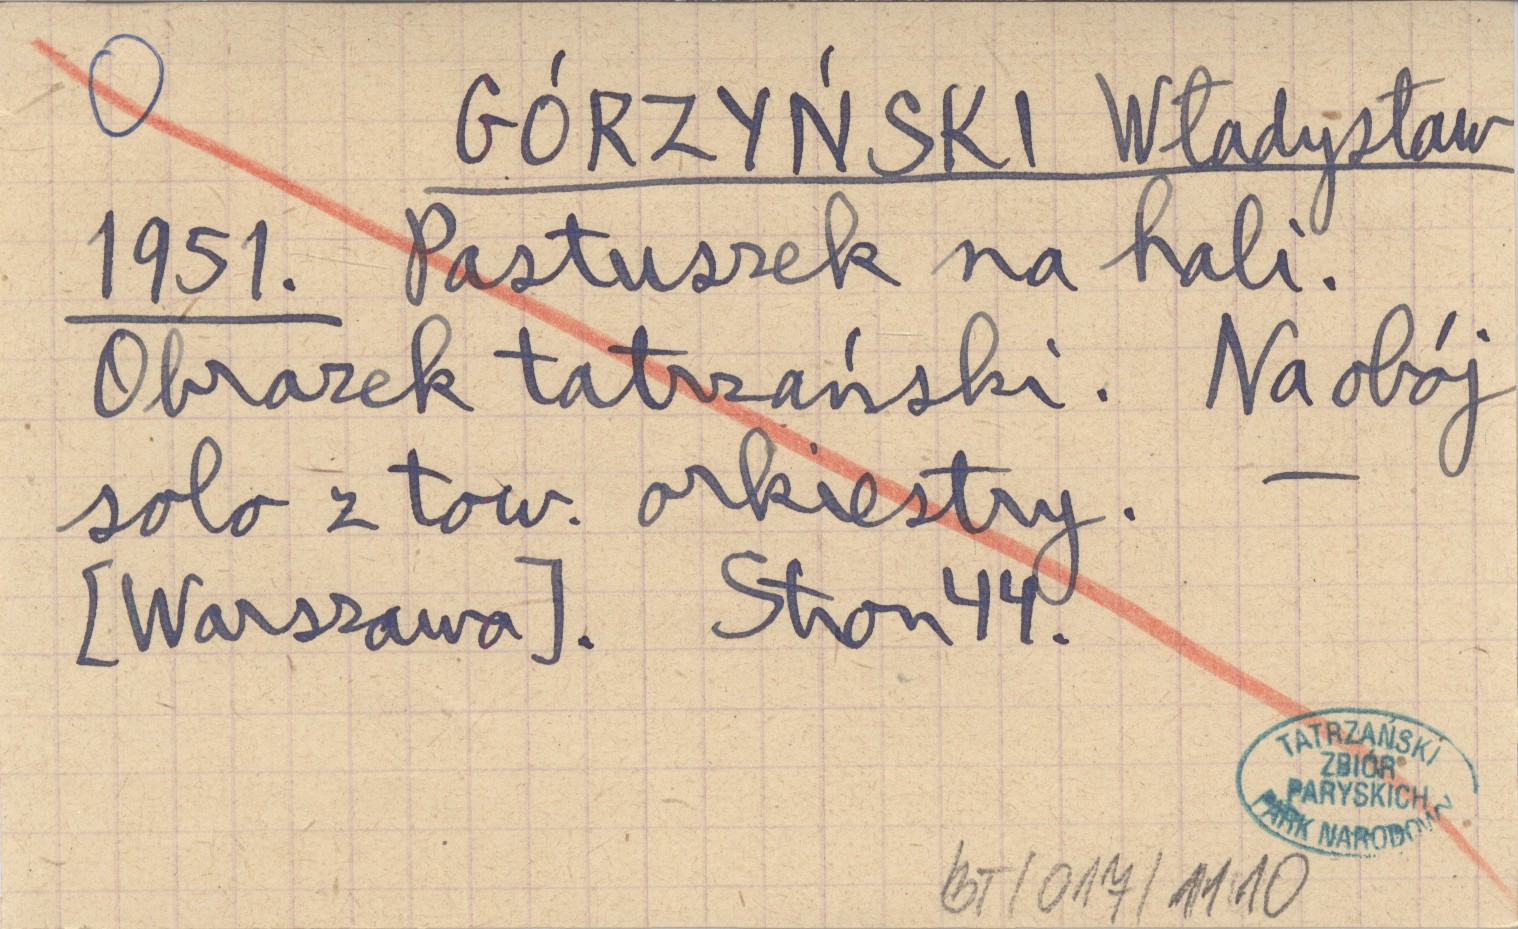 GÓRZYŃSKI Władysław
1951. Pastuszek na hali.
Obrazek tatrzański. Na obój
solo z tow. orkiestry. —
[Warszawa]. Stron 44.
TATRZAŃSKI
ZBIÓR
PARYSKICH
PARK NARODOWY
BT/017/1110